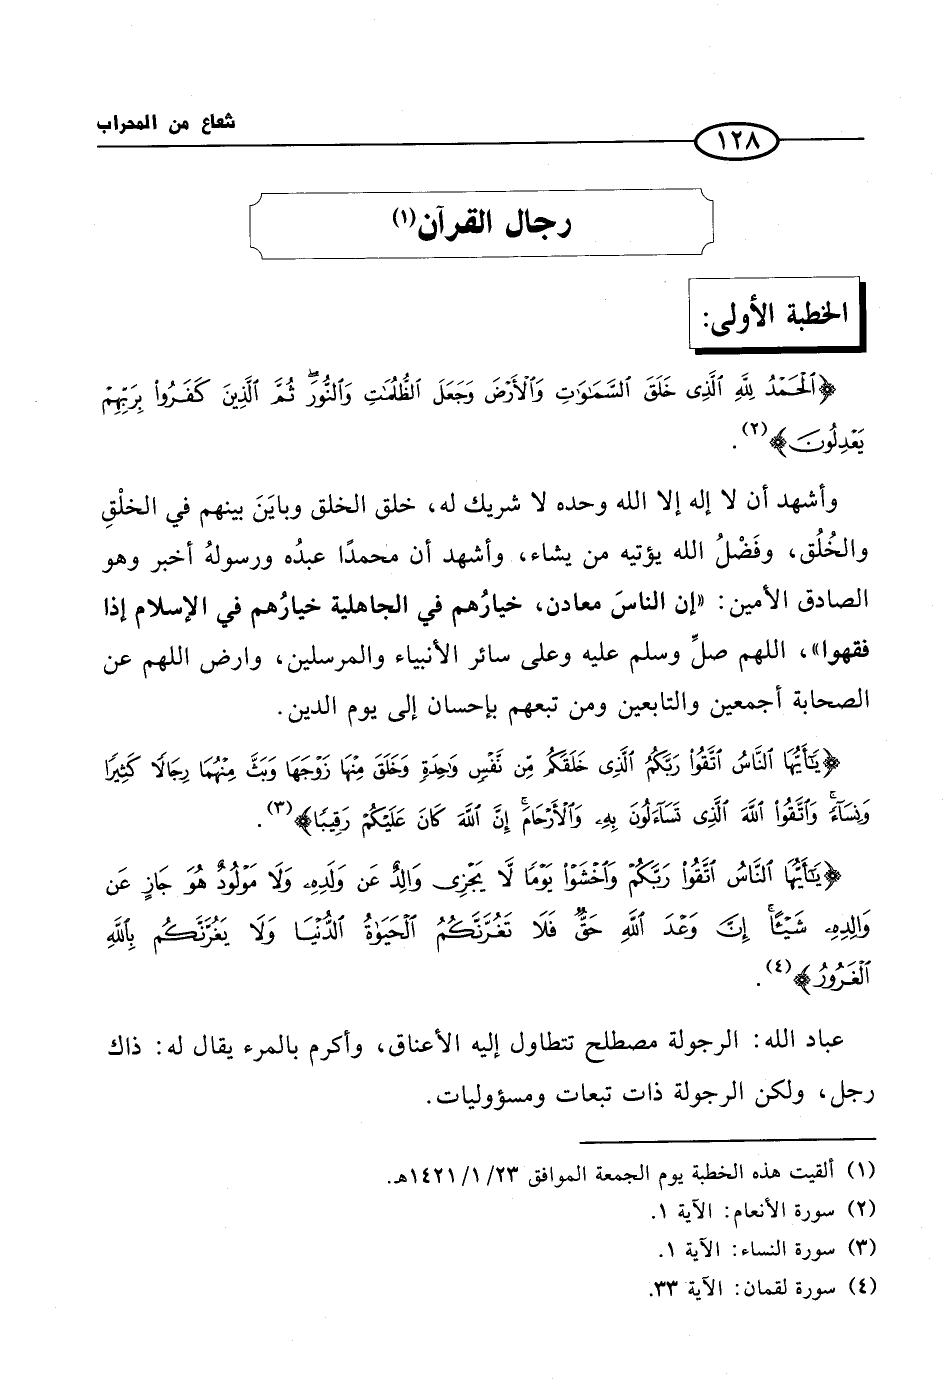 شعاع من المحراب
١٢٨
رجال القرآن(١)
الخطبة الأولى:
﴿ٱلْحَمْدُ لِلَّهِ ٱلَّذِى خَلَقَ ٱلسَّمَٰوَٰتِ وَٱلْأَرْضَ وَجَعَلَ ٱلظُّلُمَٰتِ وَٱلنُّورَۖ ثُمَّ ٱلَّذِينَ كَفَرُوا۟ بِرَبِّهِمْ
يَعْدِلُونَ﴾(٢).
وأشهد أن لا إله إلا الله وحده لا شريك له، خلق الخلق وبايَنَ بينهم في الخلْقِ
والخُلُق، وفَضْلُ الله يؤتيه من يشاء، وأشهد أن محمدًا عبدُه ورسولهُ أخبر وهو
الصادق الأمين: «إن الناسَ معادن، خيارُهم في الجاهلية خيارُهم في الإسلام إذا
فقهوا»، اللهم صلِّ وسلم عليه وعلى سائر الأنبياء والمرسلين، وارض اللهم عن
الصحابة أجمعين والتابعين ومن تبعهم بإحسان إلى يوم الدين.
﴿يَٰٓأَيُّهَا ٱلنَّاسُ ٱتَّقُوا۟ رَبَّكُمُ ٱلَّذِى خَلَقَكُم مِّن نَّفْسٍ وَٰحِدَةٍ وَخَلَقَ مِنْهَا زَوْجَهَا وَبَثَّ مِنْهُمَا رِجَالًا كَثِيرًا
وَنِسَآءًۚ وَٱتَّقُوا۟ ٱللَّهَ ٱلَّذِى تَسَآءَلُونَ بِهِۦ وَٱلْأَرْحَامَۚ إِنَّ ٱللَّهَ كَانَ عَلَيْكُمْ رَقِيبًا﴾(٣).
﴿يَٰٓأَيُّهَا ٱلنَّاسُ ٱتَّقُوا۟ رَبَّكُمْ وَٱخْشَوْا۟ يَوْمًا لَّا يَجْزِى وَالِدٌ عَن وَلَدِهِۦ وَلَا مَوْلُودٌ هُوَ جَازٍ عَن
وَالِدِهِۦ شَيْـًٔاۚ إِنَّ وَعْدَ ٱللَّهِ حَقٌّۖ فَلَا تَغُرَّنَّكُمُ ٱلْحَيَوٰةُ ٱلدُّنْيَا وَلَا يَغُرَّنَّكُم بِٱللَّهِ
ٱلْغَرُورُ﴾(٤).
عباد الله: الرجولة مصطلح تتطاول إليه الأعناق، وأكرم بالمرء يقال له: ذاك
رجل، ولكن الرجولة ذات تبعات ومسؤوليات.
(١) ألقيت هذه الخطبة يوم الجمعة الموافق ٢٣/ ١/ ١٤٢١هـ.
(٢) سورة الأنعام: الآية ١.
(٣) سورة النساء: الآية ١.
(٤) سورة لقمان: الآية ٣٣.